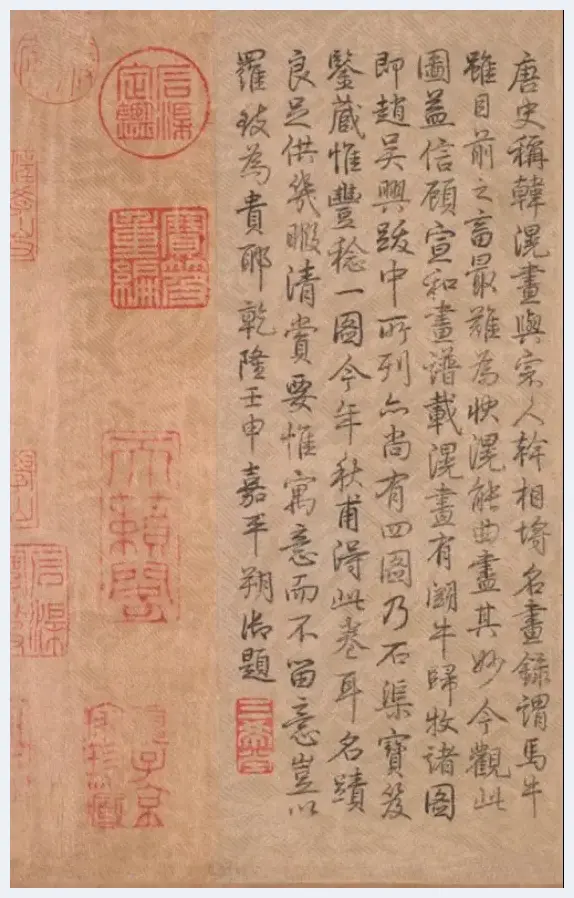 唐史稱韓滉畫與宗人幹相埒名畫錄謂馬牛
雖目前之畜最難為狀滉能曲盡其妙今觀此
圖益信顧宣和畫譜載滉畫有鬪牛歸牧諸圖
即趙吳興跋中所列亦尚有四圖乃石渠寶笈
鑒藏惟豐稔一圖今年秋甫得此卷耳名蹟
良足供幾暇清賞要惟寓意而不留意豈以
羅致為貴耶乾隆壬申嘉平朔御題
三希堂
石渠定鑑
寶笈重編
天籟閣
子京